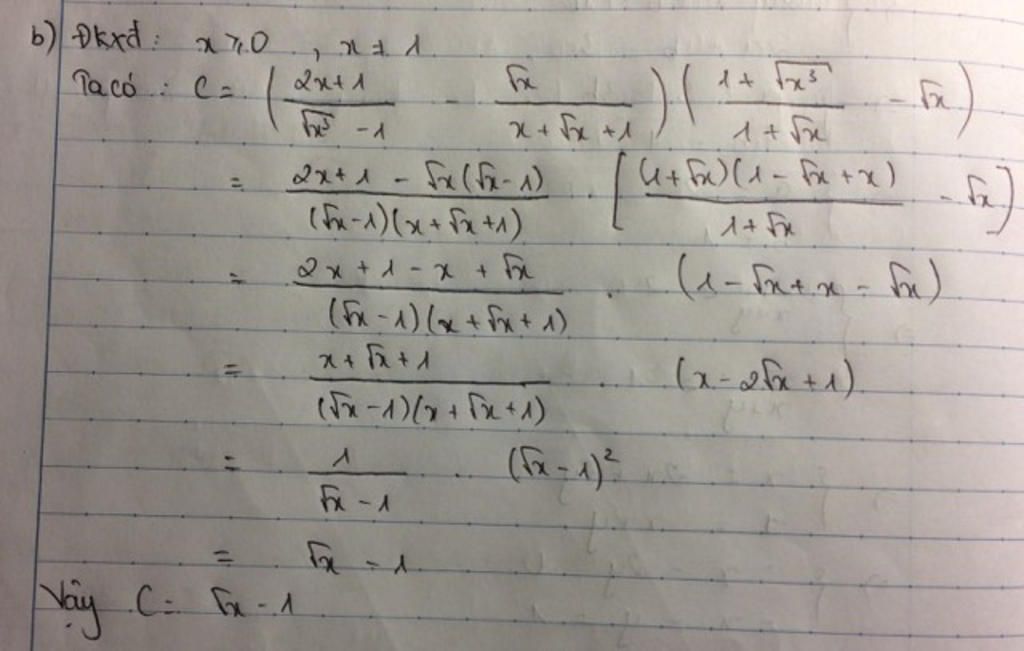 b) Đkxđ: x ≥ 0 , x ≠ 1
Ta có : C = ( (2x+1)/(√x³ - 1) - √x/(x + √x + 1) ) ( (1 + √x³)/(1 + √x) - √x )
= (2x + 1 - √x(√x - 1))/((√x - 1)(x + √x + 1)) . [ ((1+√x)(1 - √x + x))/(1 + √x) - √x ]
= (2x + 1 - x + √x)/((√x - 1)(x + √x + 1)) . (1 - √x + x - √x)
= (x + √x + 1)/((√x - 1)(x + √x + 1)) . (x - 2√x + 1)
= 1/(√x - 1) . (√x - 1)²
= √x - 1
Vậy C = √x - 1